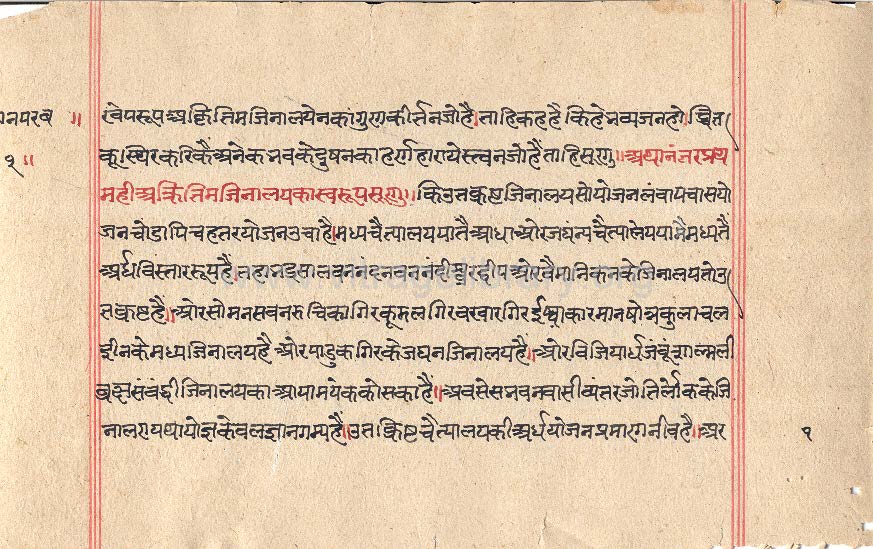 षेपरूपअक्रितिमजिनालयेनकांगुणकीर्तनजोहै।ताहिकहहैकिहेभव्यजनहो।चित
कूस्थिरकरिकैअनेकभवकेदुषनकाहर्णहारायेस्तवनजोहैताहिसुणु॥अथानंतरप्रथ
महीअक्रितिमजिनालयकास्वरूपसुणु॥किउतक्रष्टजिनालयसोयोजनलंबापचासयो
जनचोडापिचहतरयोजनउचाहै।मध्यचैत्यालययातैआधाओरजघन्यचैत्यालेययामैमध्यतै
अर्धविस्ताररूपहै।तहाभद्रसालवननंदनवननंदीश्वरद्वीपओरवैमानिकनकेजिनालयतोउ
तक्रष्टहै।ओरसोमनसवनरुचिकागिरकूमलगिरवखारगिरईष्वाकारमानषोत्रकुलाचल
इनकेमध्यजिनालयहै।ओरपाडुकगिरकेजघनजिनालयहै।ओरविजियार्धजंबूशाल्मली
व्रक्षसंबंद्दीजिनालयकाआयामयेककोसकाहै।अवसेसभवनवासीव्यंतरजोतिर्लोककेजि
नालययथायोज्ञकेवलज्ञानगम्यहै॥उतक्रिष्टचैत्यालयकीअर्धयोजनप्रमाणनीवहै।अर
१॥
१